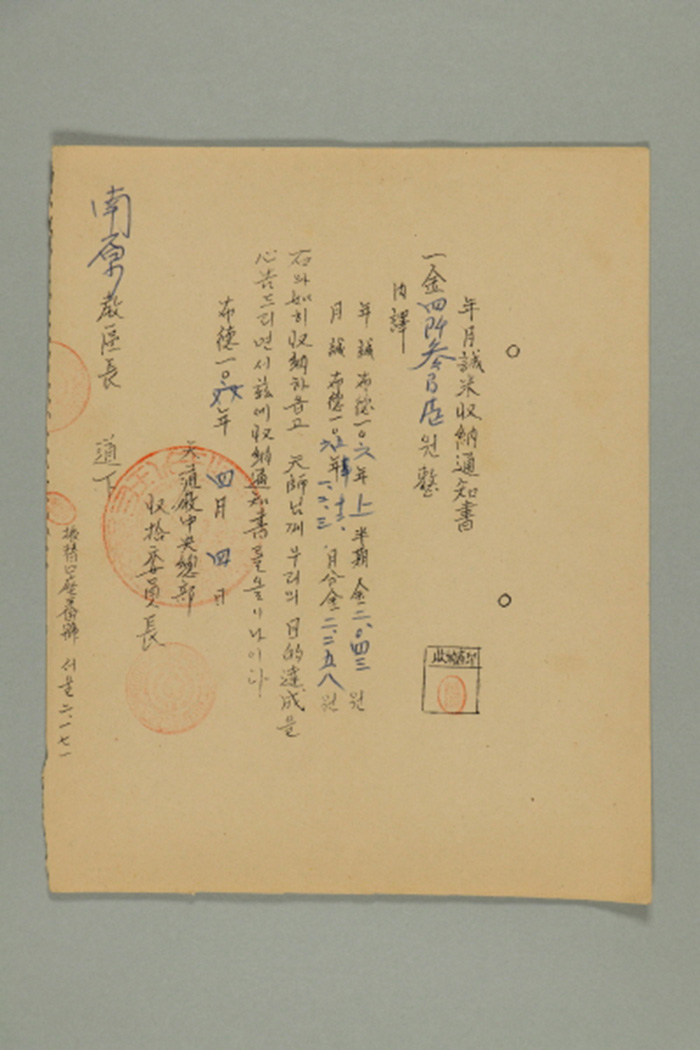 年月誠米収納通知書
一金四阡參百壱원整
內譯
年誠 布德一〇六年 上 半期 金二、〇四三 원
月誠 布德一〇六年 一、二、三 月分金二、二五八 원
右와如히収納하옵고 天師님께 우리의 目的達成을
心告드리면서玆에収納通知書를올리나이다
布德一〇 年 四月 四 日
天道敎中央總部
収拾委員長
南原 敎區長 道下
振替口座番號 서울 二、一七一